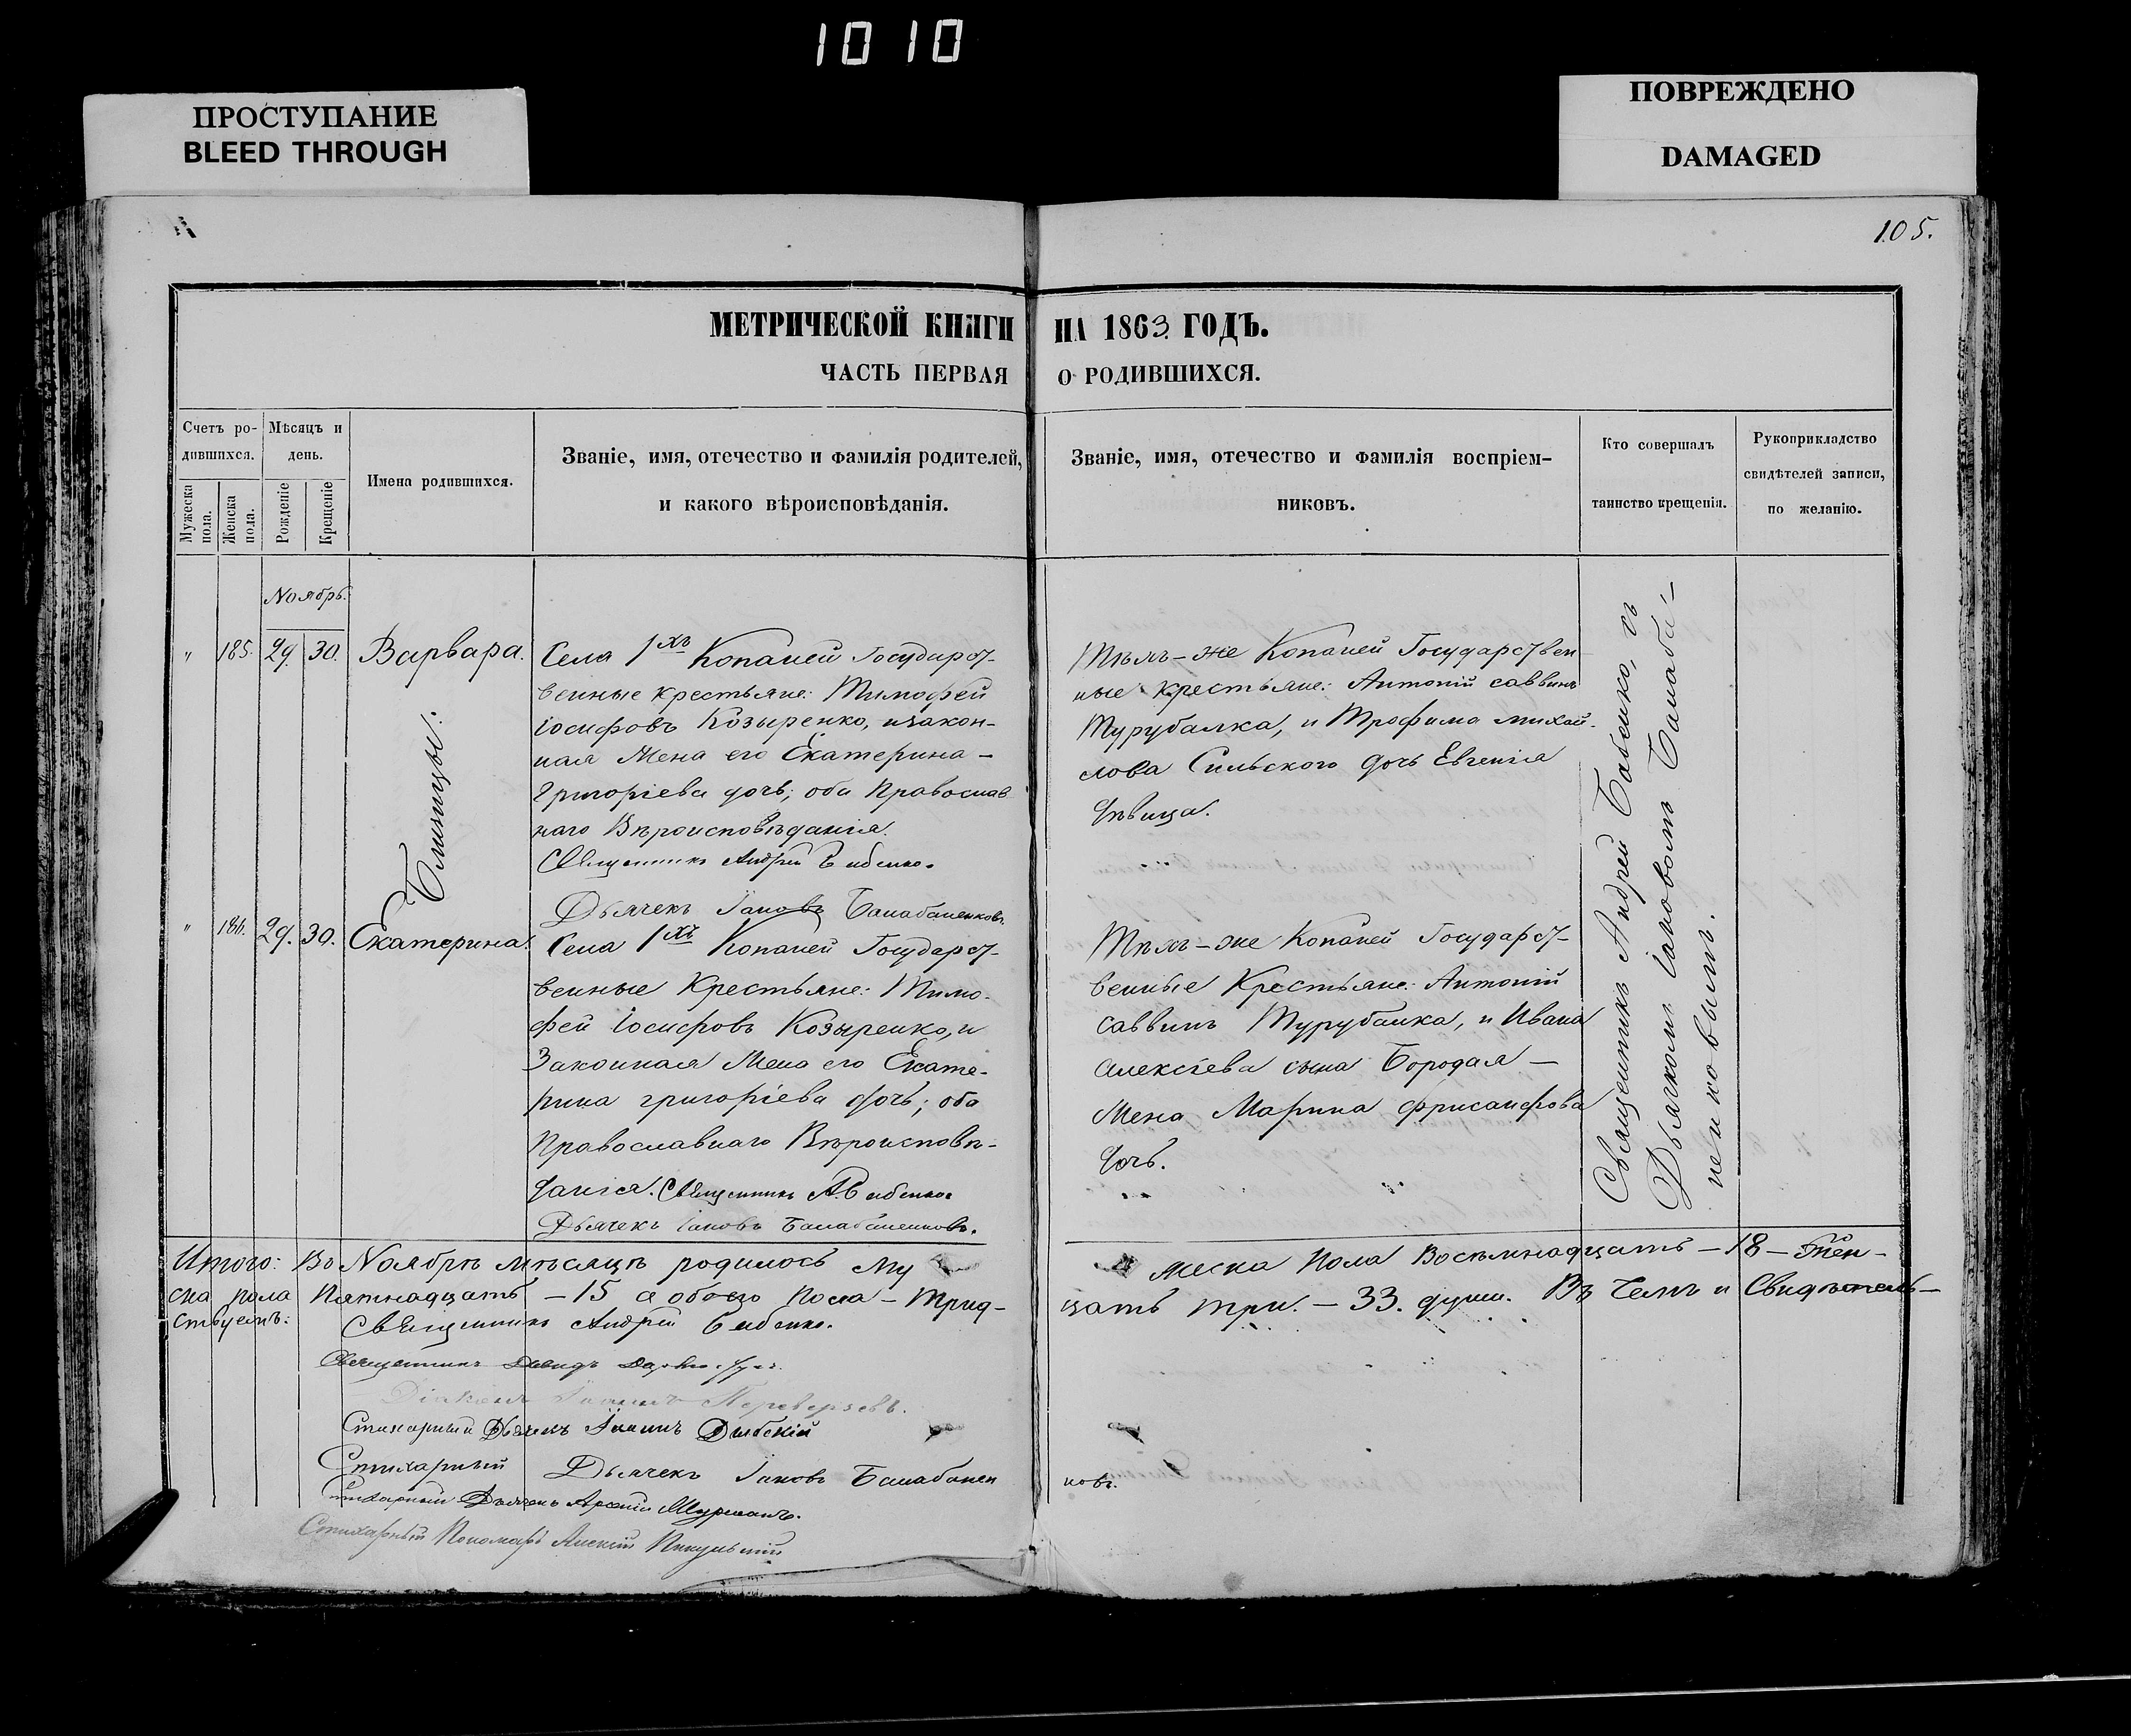 1010
ПРОСТУПАНИЕ
BLEED THROUGH
ПОВРЕЖДЕНО
DAMAGED
105.
МЕТРИЧЕСКОЙ КНИГИ НА 1863 ГОДЪ.
ЧАСТЬ ПЕРВАЯ О РОДИВШИХСЯ.
Счетъ ро-
дившихся.
Мужеска
пола.
Женска
пола.
Мѣсяцъ и
день.
Рожденіе
Крещеніе
Имена родившихся.
Званіе, имя, отечество и фамилія родителей,
и какого вѣроисповѣданія.
Званіе, имя, отечество и фамилія воспріем-
никовъ.
Кто совершалъ
таинство крещенія.
Рукоприкладство
свидѣтелей записи,
по желанію.
Ноябрь.
" 185. 29. 30. Варвара.
Села 1хъ Копаней Государст-
венные крестьяне: Тимофей
Іосифовъ Козыренко, и закон-
ная Жена его Екатерина –
Григоріева дочь; оба Православ
наго Вѣроисповѣданія.
Священникъ Андрей Бабенко.
Дьячекъ Іаковъ Балабаненковъ.
Тѣхъ-же Копаней Государствен
ные крестьяне: Антоній саввинъ
Турубалка, и Трофима михай-
лова Сильского дочь Евгенія
дѣвица.
Близницы:
" 186. 29. 30. Екатерина.
Села 1хъ Копаней Государст-
венные Крестьяне: Тимо-
фей Іосифовъ Козыренко, и
Законная Жена его Екате-
рина григоріева дочь; оба
Православнаго Вѣроисповѣ-
данія. Священникъ А Бабенко.
Дьячекъ Іаковъ Балабаненковъ.
Тѣхъ-же Копаней Государст-
венные Крестьяне: Антоній
саввинъ Турубалка, и Ивана
Алексѣева сына Бородая –
Жена Марина
дочь.
Священникъ Андрей Бабенко, съ
Дьячкомъ Іаковомъ Балаба-
ненковымъ.
Итого: Въ Ноябрѣ мѣсяцѣ родилось Му жеска Пола Восѣмнадцать – 18 – Жен-
ска пола Пятнадцать – 15 а обоего Пола – Трид- цать три. – 33. души. Въ Чемъ и Свидѣтель-
ствуемъ: Священникъ Андрей Бабенко.
Священникъ Давидъ
Діаконъ Іоаннъ Переверзевъ.
Стихарный Дьячекъ Іоаннъ
Стихарный Дьячекъ Іаковъ Балабанен ковъ.
Стихарный Дьячекъ Арсеній
Стихарный Пономарь Алексій